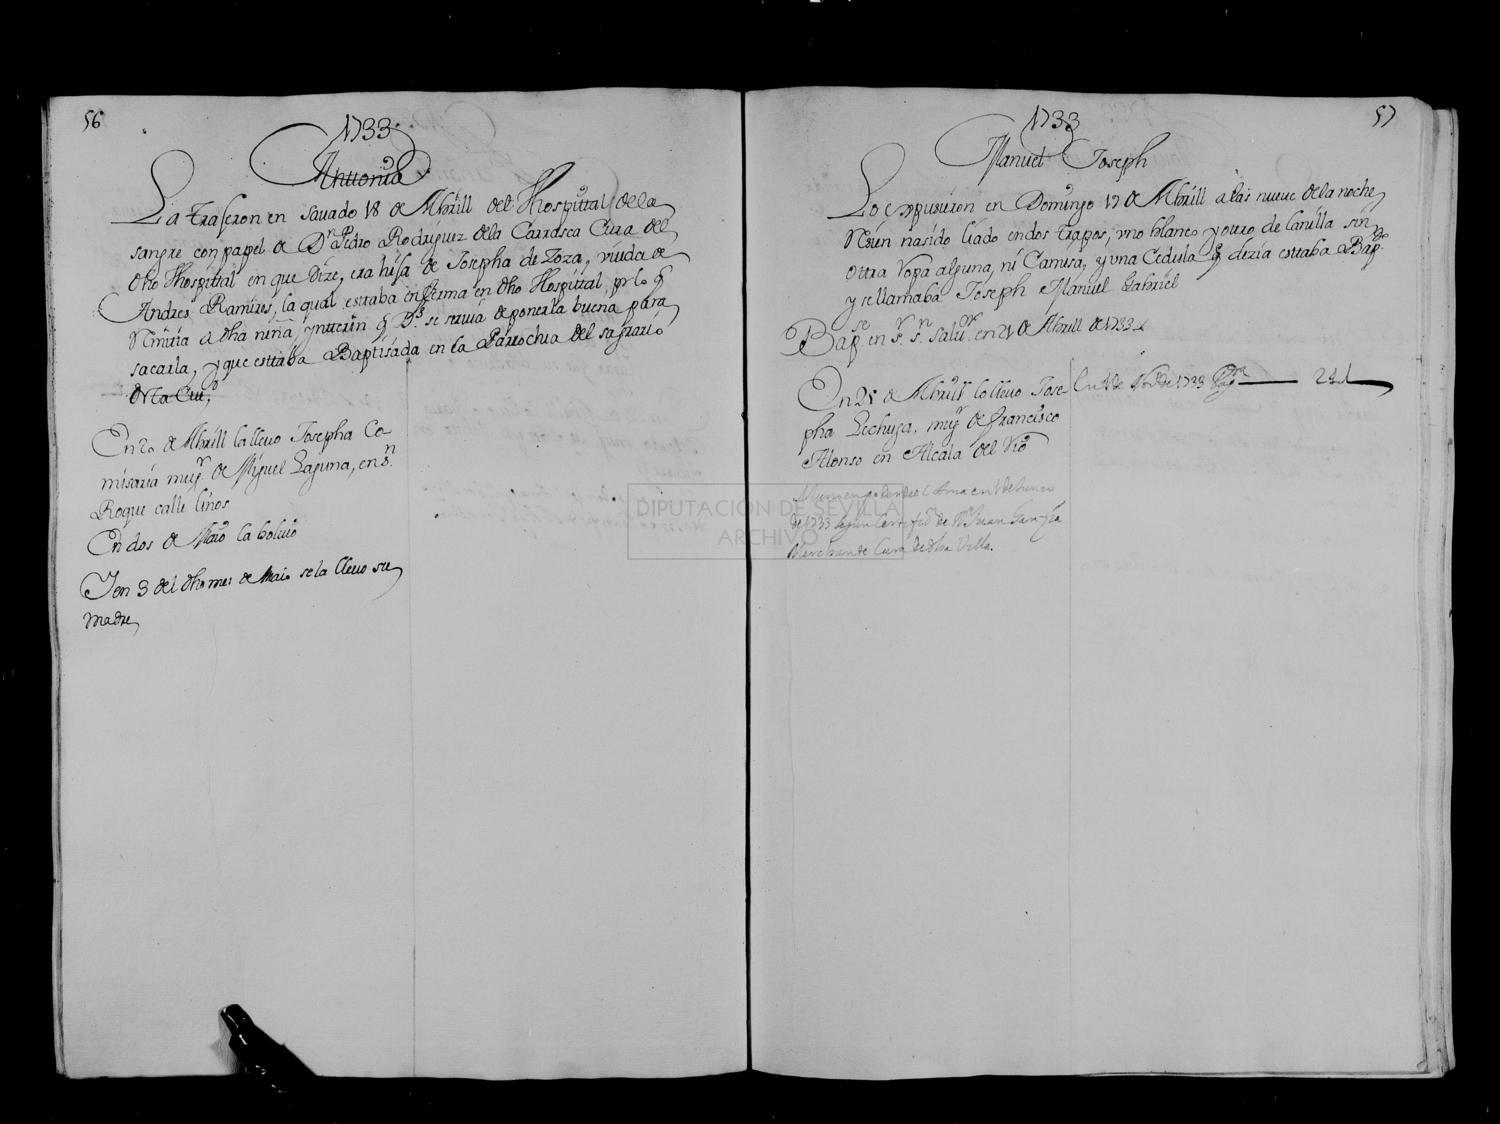 56
1733
Antonia
La traseron en savado 18 de Abrill del Hospittal de la
sangre con papel de Dn Pedro Rodriguez de la Carrasca Cura del
dho Hospittal en que dize, era hija de Josepha de Zoza, viuda de
Andres Ramires, la qual estaba enferma en dho Hospittal, pr lo q
Remitia a dha niña ynterin q Ds. se servia de ponerla buena para
sacarla, y que esttaba Baptisada en la Parrochia del sagrario
desta Ciud,
En 20 de Abrill la llevo Josepha Co-
misaria mugr. de Miguel Laguna, en Sn.
Roque calle linos
En dos de Maio la bolvio
Y en 3 del dho mes de Maio se la llevo su
madre,
57
1733
Manuel Joseph
Lo expusieron en Domingo 19 de Abrill a las nueve de la noche
Resien nasido liado en dos trapos, uno blanco y otro de lanilla sin
ottra ropa alguna, ni Camisa, y una Cedula q dezia esttaba Bapdo.
y se llamaba Joseph Manuel Gabriel
Bapse en Sr. Sn. Salvor. en 21 de Abrill de 1733
En 21 de Abrill lo llevo Jose-
pha Lechuga, mugr de Francisco
Alonso en Alcala del Rio
Murio en poder del Ama en 1 de Junio
de 1733 segun Certificn de Dn Juan
Merchante Cura de dha Villa.
En 1 de Nove de 1733 Pagon 24
DIPUTACIÓN DE SEVILLA
ARCHIVO